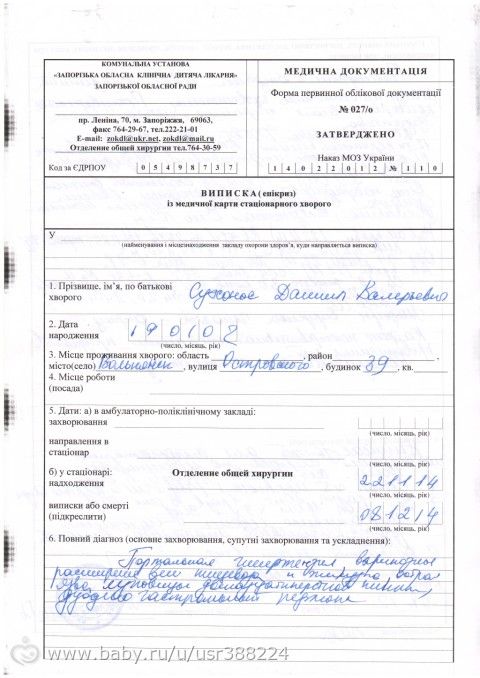 КОМУНАЛЬНА УСТАНОВА
«ЗАПОРІЗЬКА ОБЛАСНА КЛІНІЧНА ДИТЯЧА ЛІКАРНЯ»
ЗАПОРІЗЬКОЇ ОБЛАСНОЇ РАДИ
пр. Леніна, 70, м. Запоріжжя, 69063,
факс 764-29-67, тел.222-21-01
E-mail: zokdl@ukr.net, zokdl@mail.ru
Отделение общей хирургии тел.764-30-59
Код за ЄДРПОУ 05498737
МЕДИЧНА ДОКУМЕНТАЦІЯ
Форма первинної облікової документації
№ 027/о
ЗАТВЕРДЖЕНО
Наказ МОЗ України
14022012 № 110
ВИПИСКА ( епікриз)
із медичної карти стаціонарного хворого
У
(найменування і місцезнаходження закладу охорони здоров'я, куди направляється виписка)
1. Прізвище, ім'я, по батькові
хворого Даниил Валерьевич
2. Дата
народження 190108
(число, місяць, рік)
3. Місце проживання хворого: область , район ,
місто(село) , вулиця Островского , будинок 39 , кв.
4. Місце роботи
(посада)
5. Дати: а) в амбулаторно-поліклінічному закладі:
захворювання
(число, місяць, рік)
направлення в
стаціонар
(число, місяць, рік)
б) у стаціонарі:
надходження Отделение общей хирургии 221114
(число, місяць, рік)
виписки або смерті
(підкреслити) 081214
(число, місяць, рік)
6. Повний діагноз (основне захворювання, супутні захворювання та ускладнення):
Портальная гипертензия варикозное
расширение вен пищевода и желудка
www.baby.ru/u/usr388224